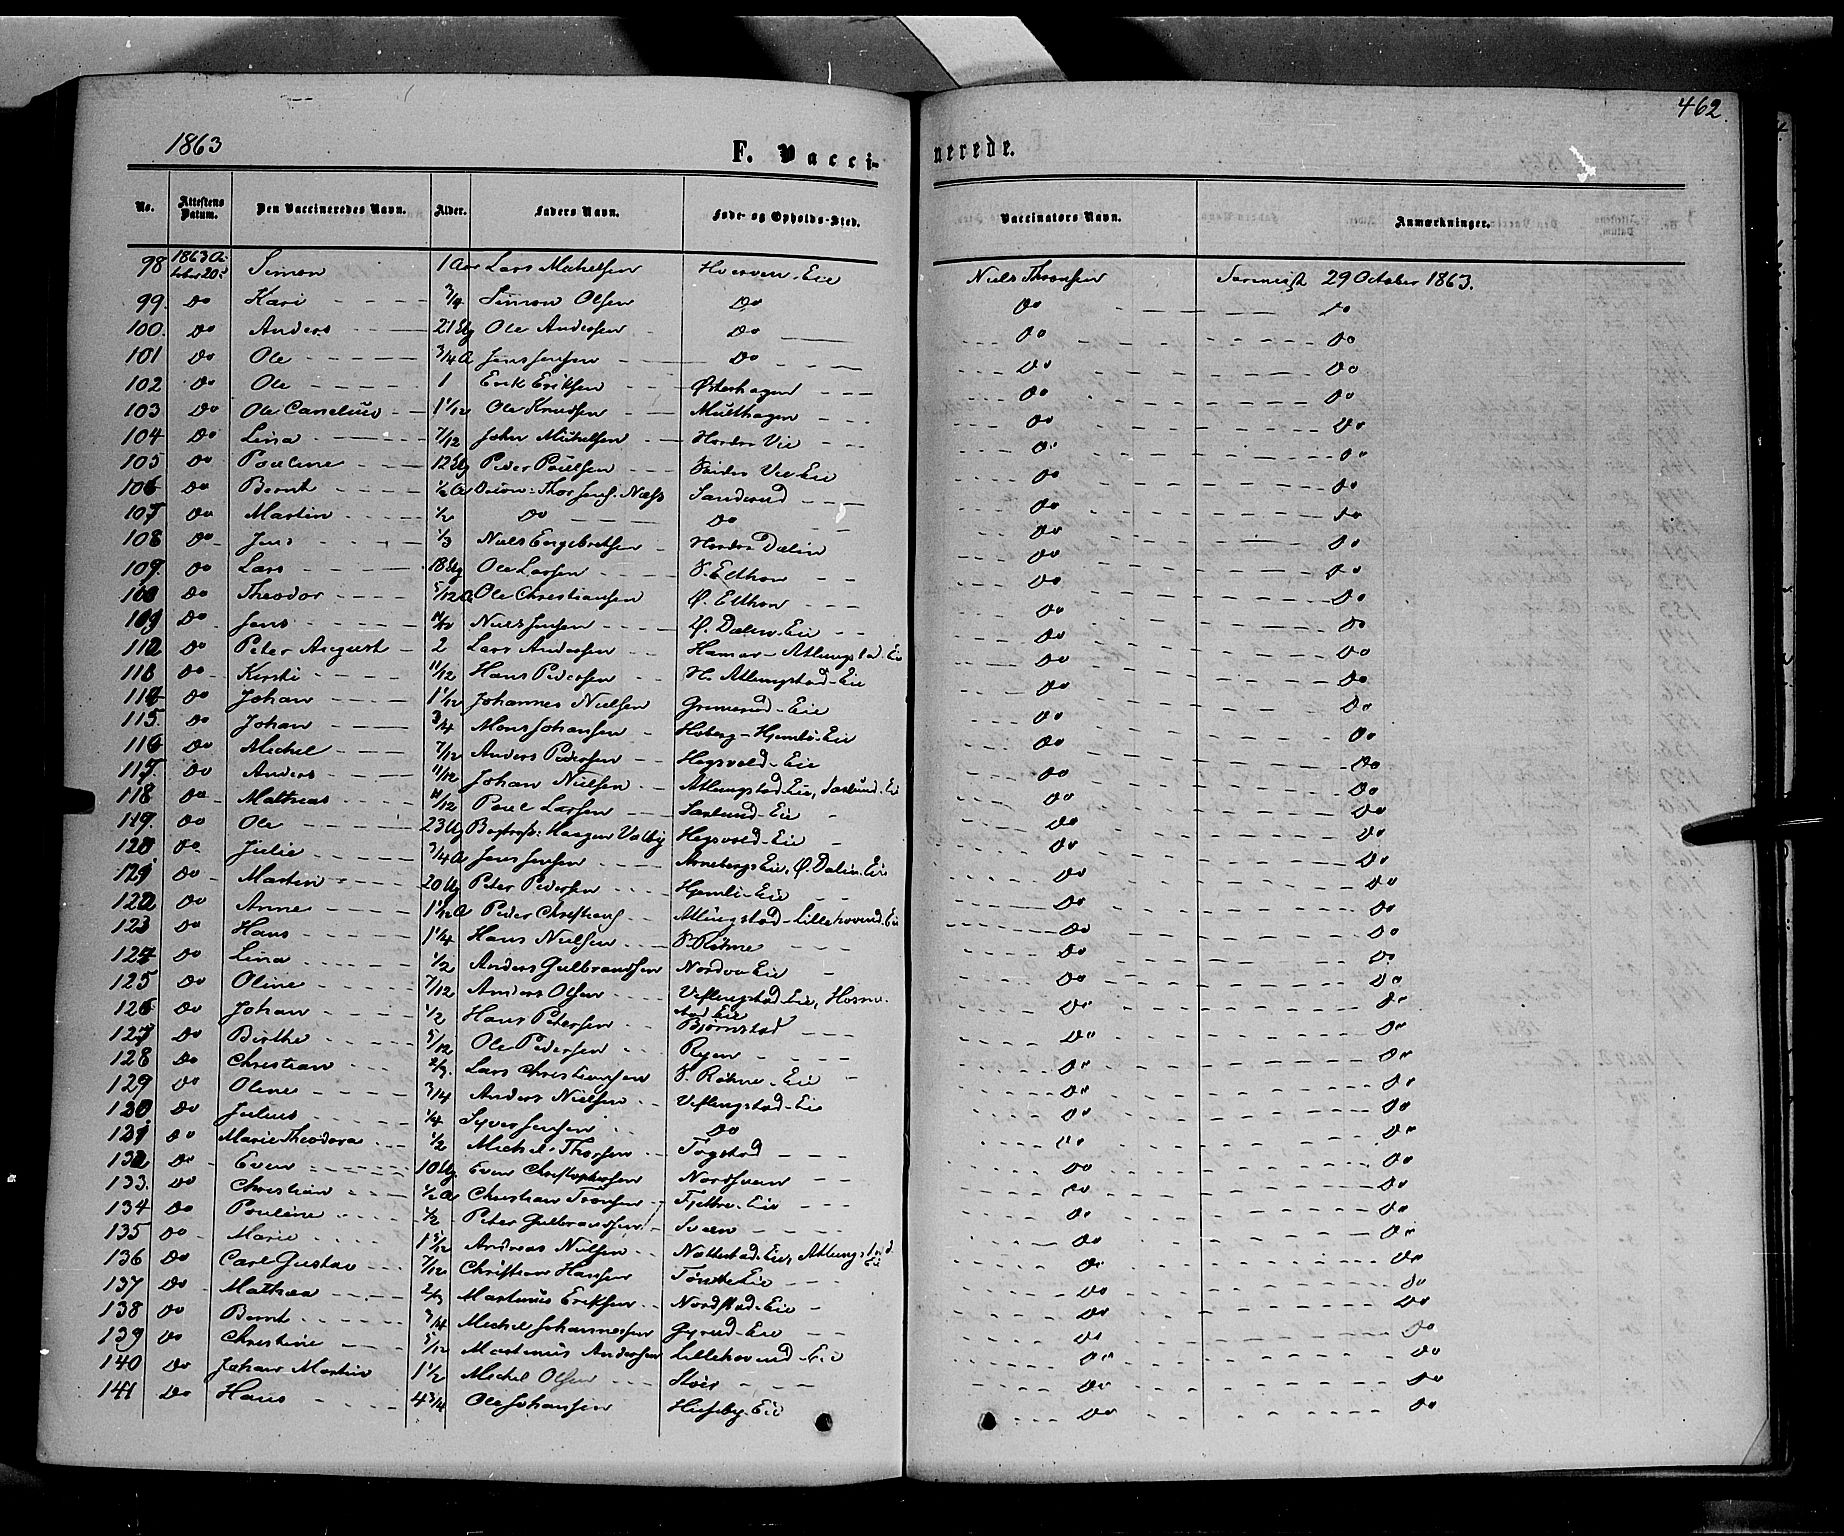 462.
1863
F. Vacci-
nerede.
No. Attestens Datum. Den Vaccineredes Navn. Alder. Faders Navn. Føde- og Opholds-Sted. Vaccinators Navn. Anmærkninger.
98 1863 October 20de Simon 1 Aar Lars Michelsen Hverven-Eie Niels Thronsen 29 October 1863.
99. Do Kari 3/4 Simon Olsen Do Do Do
100. Do Anders 21 Ug Ole Andersen Do Do Do
101 Do Ole 3/4 A Jens Jensen Do Do Do
102 Do Ole 1 Erik Eriksen Østerhagen Do Do
103 Do Ole Cornelius 1 1/12 Ole Knudsen Multhagen Do Do
104 Do Lina 7/12 John Michelsen Nordre Vie Do Do
105 Do Pauline 12 Ug Peder Paulsen Søndre Vie Eie Do Do
106 Do Bernt 1/2 A Thor Jens. Næss Sanderud Do Do
107 Do Martin 1/2 Do Do Do Do
108 Do Jens 1/3 Niels Engebretsen Nordre Dælin Do Do
109. Do Lars 18 Ug Ole Larsen V. Elthon Do Do
110 Do Theodor 5/12 A Ole Christiansen Ø. Elthon Do Do
Do Jens Niels Jensen Ø. Dælin-Eie Do Do
112 Do Peter August 2 Lars Andersen Hamar-Atlungstad-Eie Do Do
113 Do Kirsti 11/12 Hans Pedersen N. Atlungstad-Eie Do Do
114 Do Johan 1 1/12 Johannes Nielsen Grimerud-Eie Do Do
115. Do Johan 3/4 Mons Johansen Hoberg-Hjemli-Eie Do Do
116 Do Michel 7/12 Anders Pedersen Hegsvold-Eie Do Do
117. Do Anders 11/12 Johan Nielsen Atlungstad Eie, Sælund-Eie Do Do
118 Do Mathias 11/12 Poul Larsen Sælund-Eie Do Do
119. Do Ole 23 Ug Haagen Valby Hegsvold-Eie Do Do
120 Do Julie 3/4 A Jens Jensen Arneberg Eie, Ø. Dælin-Eie Do Do
121 Do Martin 20 Ug Peter Pedersen Hjemli-Eie Do Do
122 Do Anne 1 1/12 A Peder Christians. Atlungstad-Lillehovend-Eie Do Do
123 Do Hans 1 1/4 Hans Nielsen V. Røhne Do Do
124 Do Lina 1/2 Anders Gulbrandsen Nordvi Eie Do Do
125 Do Oline 7/12 Anders Olsen Veflingstad-Eie, Hosme-
stad Eie Do Do
126 Do Johan 1/2 Hans Petersen Bjørnstad Do Do
127 Do Birthe 5/12 Ole Pedersen Ryen Do Do
128 Do Christian 2/3 Lars Christiansen V. Røhne-Eie Do Do
129 Do Oline 3/4 Anders Nielsen Veflingstad-Eie Do Do
130 Do Julius 1/4 Syver Jensen Do Do Do
131 Do Marie Theodora 1/2 Michel Thorsen Togstad Do Do
132 Do Even 10 Ug Even Christophersen Nordsveen Do Do
133. Do Christian 1/2 A Christian Tronsen Fjettre-Eie Do Do
134 Do Pouline 1/2 Peter Gulbrandsen Sveen Do Do
135 Do Marie 1 5/12 Andreas Nilsen Nøttestad-Eie, Atlungstad-Eie Do Do
136 Do Carl Gustav 7/12 Christian Hansen Tønte Eie Do Do
137 Do Mathea 2/3 Martinus Eriksen Nordstad-Eie Do Do
138 Do Bernt 3/4 Michel Johannessen Gyrud-Eie Do Do
139 Do Christine 5/12 Martinus Andersen Lillehovend-Eie Do Do
140 Do Johan Martin 1 1/2 Michel Olsen Stoer Do Do
141 Do Hans 4 3/4 Ole Johansen Huseby-Eie Do Do